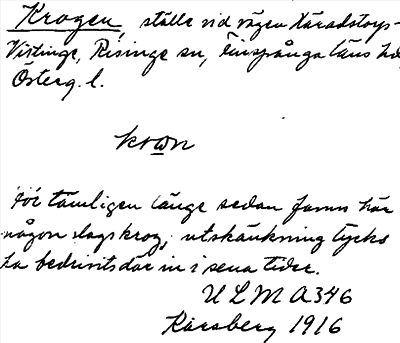 Krogen, ställe vid vägen Käradstorp-
Vistinge, Risinge sn, Finspånga läns hd,
Österg. l.
krωn
För tämligen länge sedan fanns här
någon slags krog; utskänkning tycks
ha bedrivits där in i sena tider.
ULMA 346
Karsberg 1916